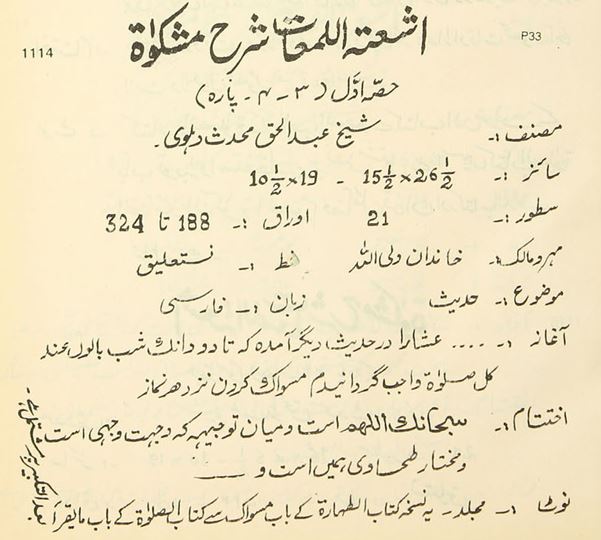 1114
P33
اشعتہ اللمعات شرح مشکوٰۃ
حصّہ اوّل (۳ - ۴ - پارہ)
مصنف :- شیخ عبدالحق محدث دہلوی -
سائز :- 15½×26½ - 10½×19
سطور :- 21 اوراق :- 188 تا 324
مہر و مالک :- خاندان ولی اللہ خط :- نستعلیق
موضوع :- حدیث زبان :- فارسی
آغاز :- .... عشارا در حدیث دیگر آمدہ کہ تا دو دانک شب بالوں عند
کل صلوٰۃ واجب گردانیدم مسواک کردن نزد ھر نماز
اختتام :- سبحانک اللھم است و میان توجیہہ کہ وجہت وجہی است
و مختار طحاوی ہمیں است و ——
نوٹ :- مجلد - یہ نسخہ کتاب الطہارۃ کے باب مسواک سے کتاب الصلوٰۃ کے باب ما یقرأ
بعد التکبیر پر مشتمل ہے -